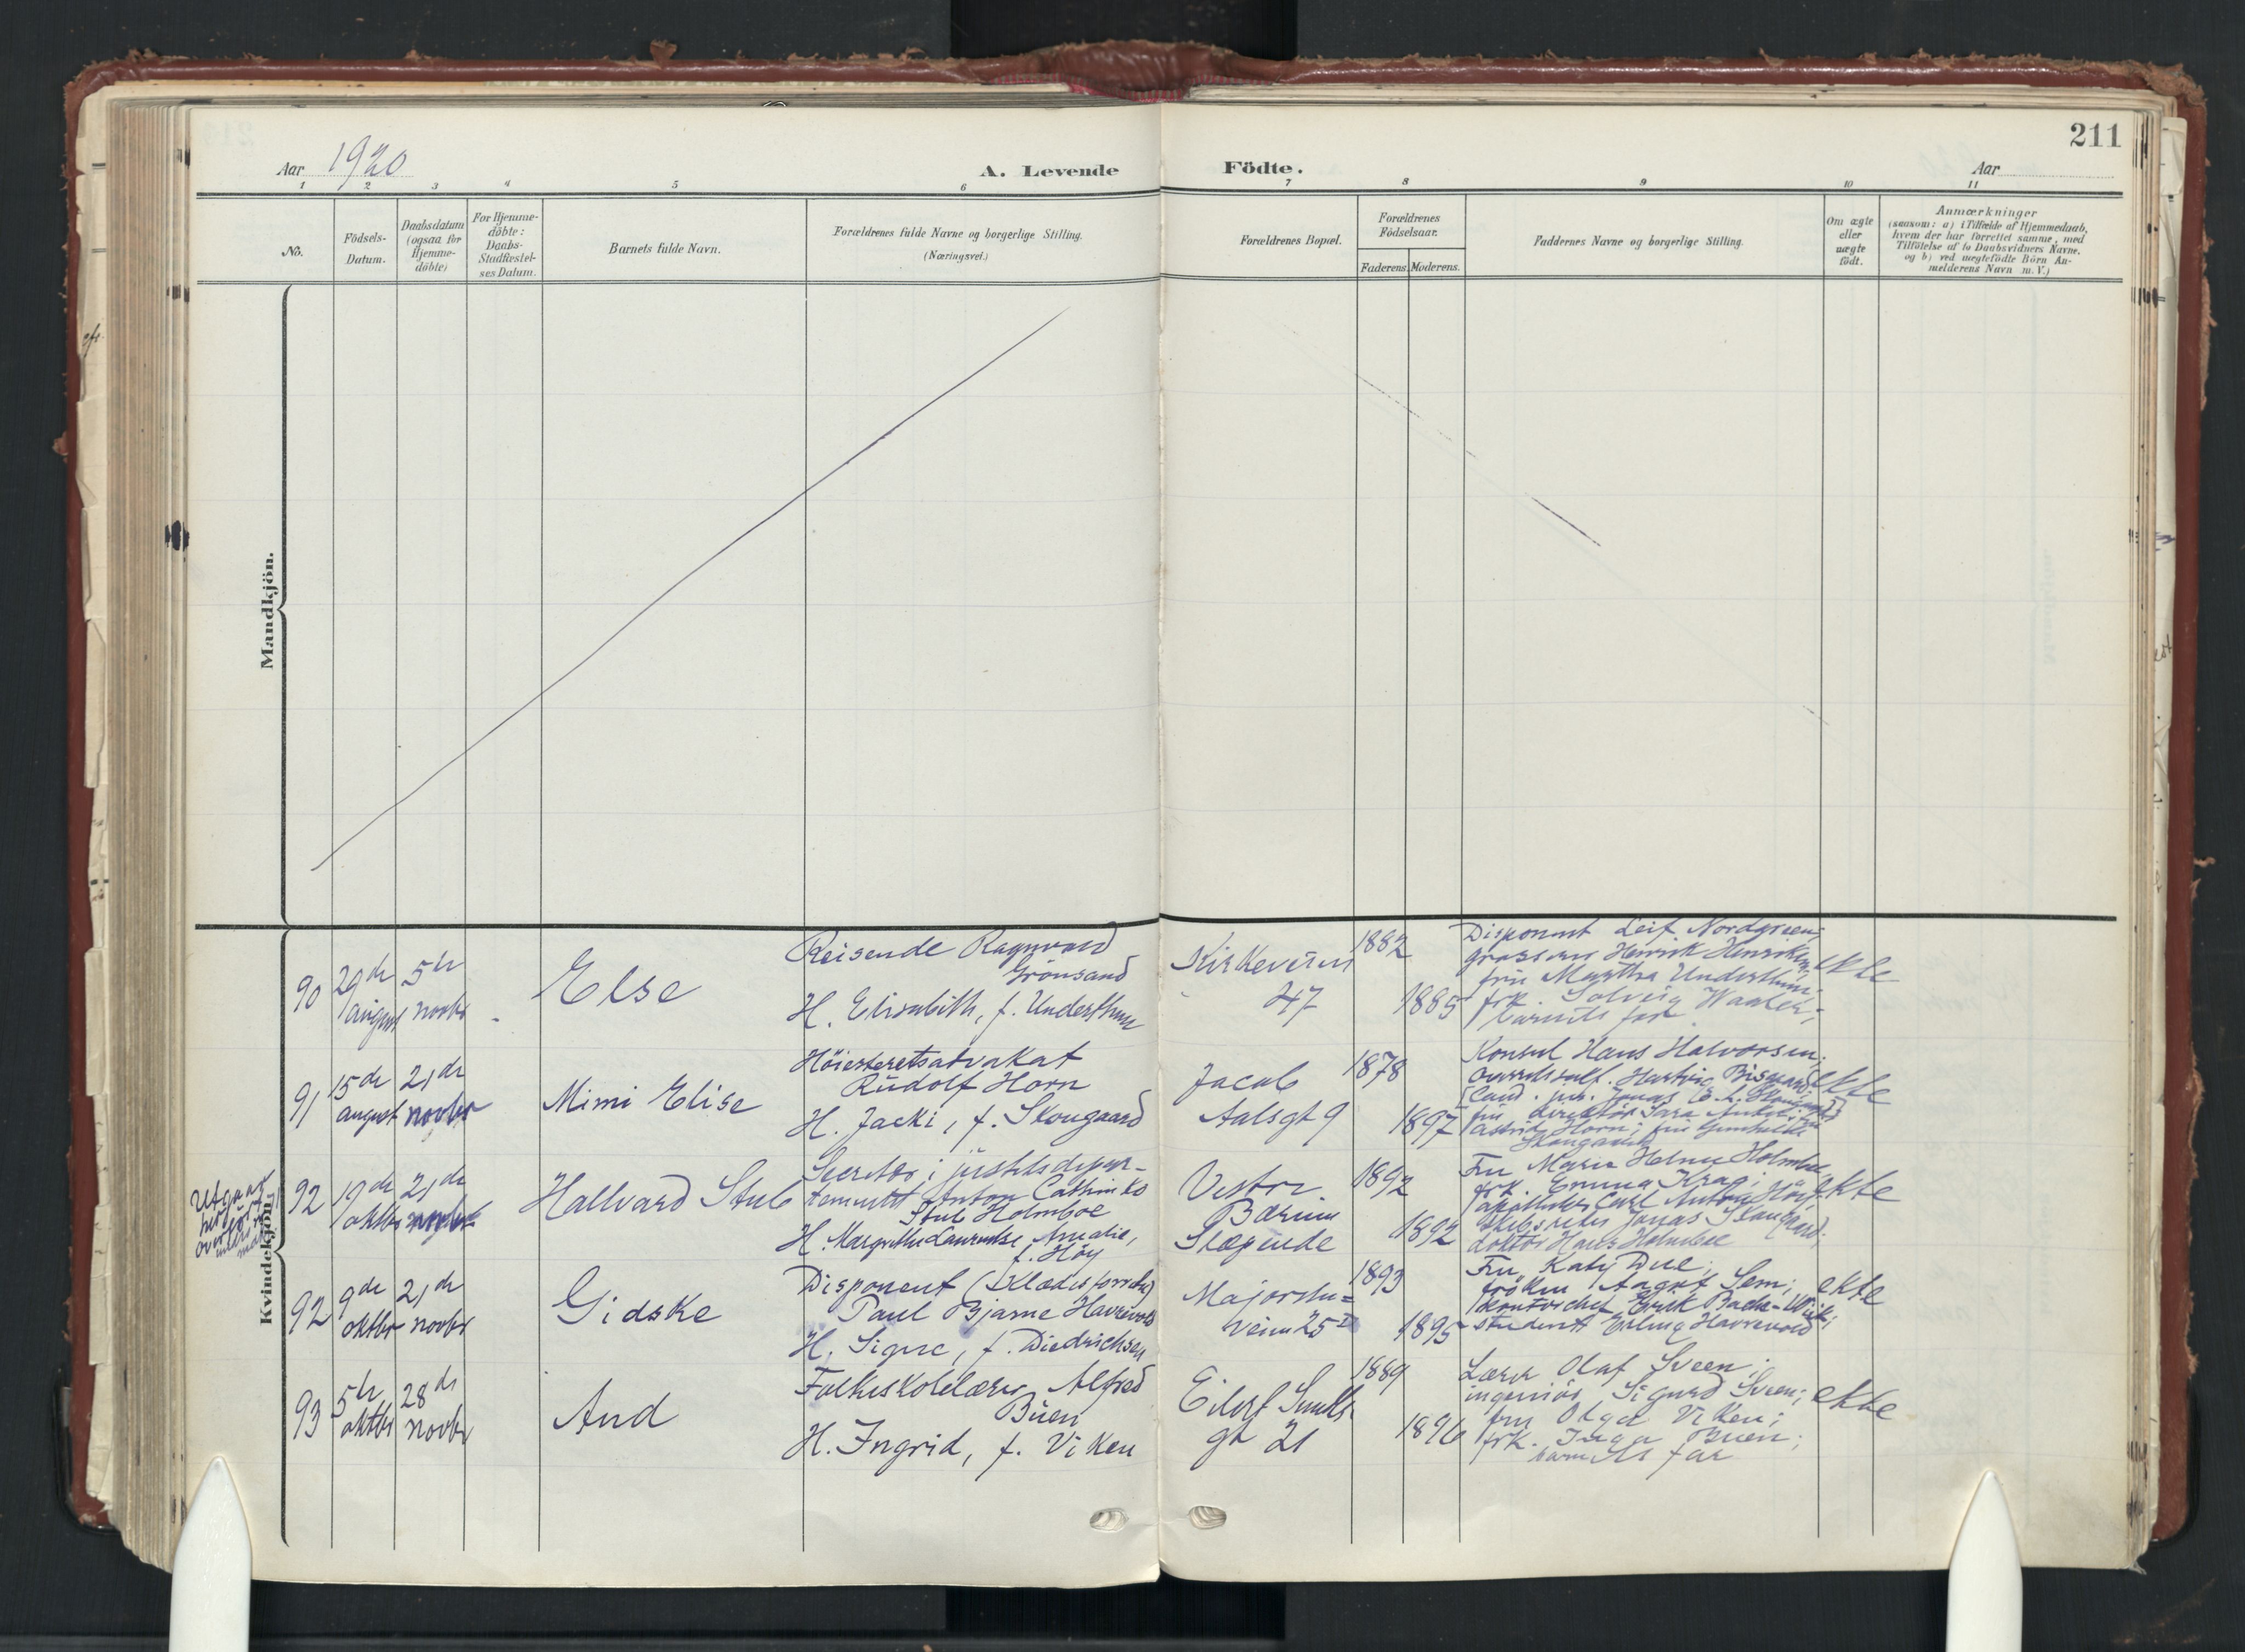 211
Aar 1920
A. Levende
Födte.
Aar
1 2 3 4 5 6 7 8 9 10 11
No.
Födsels-
Datum.
Daabsdatum
(ogsaa for
Hjemme-
döbte)
For Hjemme-
döbte:
Daabs-
Stadfæstel-
ses Datum.
Barnets fulde Navn.
Forældrenes fulde Navne og borgerlige Stilling.
(Næringsvei.)
Forældrenes Bopæl.
Forældrenes
Födselsaar.
Faderens. Moderens.
Faddernes Navne og borgerlige Stilling.
Om ægte
eller
uægte
födt.
Anmærkninger
(saasom: a) i Tilfælde af Hjemmedaab,
hvem der har forrettet samme, med
Tilföielse af to Daabsvidners Navne,
og b) ved uægtefödte Börn An-
melderens Navn m. V.)
Mandkjön.
Kvindekjön.
90
29de
august
5te
novbr
Else
Reisende Ragnvald
Grönsand
H. Elisabeth, f. Understhun
Kirkeveien
47
1882
1885
Disponent Leif Nordgreen;
grosserer Henrik Henriksen;
fru Martha Understhun;
frk. Solveig Waaler;
barnets far
ekte
91
15de
august
21de
novbr
Mimi Elise
Höiesteretsadvokat
Rudolf Horn
H. Jacki, f. Skougaard
Jacob
Aalsgt 9
1878
1897
Konsul Hans Halvorsen;
Cand. jur. Jonas
fru direktör Sara
Astrid Horn; fru
Skougaard
ekte
Utgaar
her
overföres
92
19de
oktbr
21de
novbr
Hallvard Stub
Secretær i justitsdepar-
tementet Anton Cathrinko
Stub Holmboe
H. Margrethe Laurentse Amalie,
f. Höy
Vestre
Bærum
Slæpende
1892
1892
Fru Marie Helene Holmboe
frk. Emma Krag;
apotheker Carl Anton Höy;
skibsreder Jonas Skougaard;
doktor Hans Holmboe
ekte
92
9de
oktbr
21de
novbr
Gidske
Disponent (Klædesforretn)
Paul Bjarne Havrevold
H. Signe, f. Diedrichsen
Majorstu=
veien 25 I
1893
1895
Fru Katy Due;
fröken Aagot Sem;
kontorchef Erik Bache-Wiik;
student Erling Havrevold
ekte
93
5te
oktbr
28de
novbr
Aud
Folkeskolelærer Alfred
Buen
H. Ingrid, f. Viken
Eilert Sundts
gt 21
1889
1896
Lærer Olaf Sveen;
ingeniör Sigurd Sveen;
fru Olga Viken;
frk. Inga Buen;
barnets far
ekte